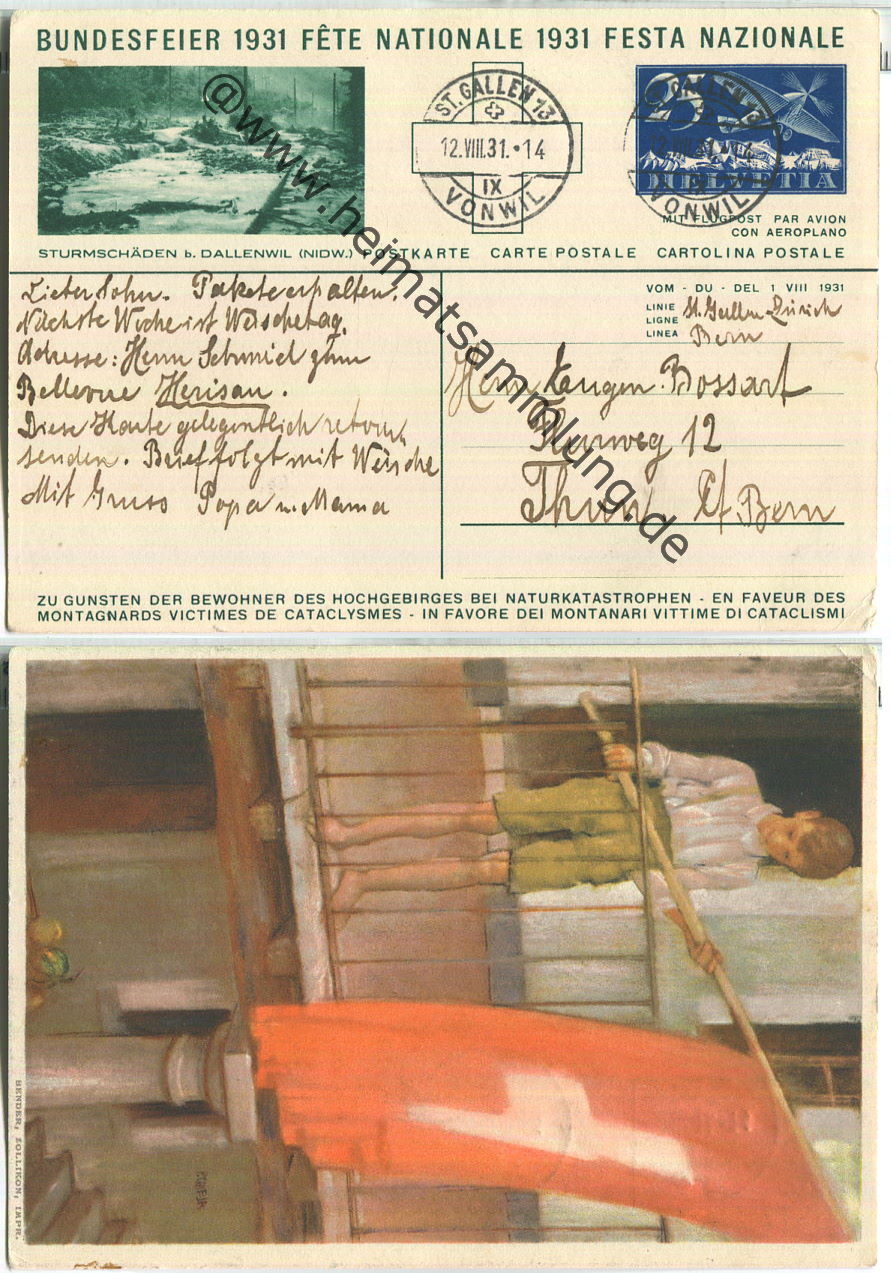 BUNDESFEIER 1931 FÊTE NATIONALE 1931 FESTA NAZIONALE
ST. GALLEN 13
12.VIII.31.•14
IX
VONWIL
25
HELVETIA
MIT FLUGPOST PAR AVION
CON AEROPLANO
STURMSCHÄDEN b. DALLENWIL (NIDW.) POSTKARTE CARTE POSTALE CARTOLINA POSTALE
Lieber Sohn. Pakete erhalten.
Nächste Woche ist Wäschetag.
Adresse: Herrn Schmid zum
Bellevue Herisau.
Diese Karte gelegentlich retour
senden. Brief folgt mit Wäsche
Mit Gruss Papa u. Mama
VOM - DU - DEL 1 VIII 1931
LINIE
LIGNE
LINEA
St. Gallen Zürich
Bern
Herrn Eugen Bossart
Flurweg 12
Thun Kt Bern
ZU GUNSTEN DER BEWOHNER DES HOCHGEBIRGES BEI NATURKATASTROPHEN - EN FAVEUR DES
MONTAGNARDS VICTIMES DE CATACLYSMES - IN FAVORE DEI MONTANARI VITTIME DI CATACLISMI
@www.heimatsammlung.de
BENDER, ZOLLIKON, IMPR.